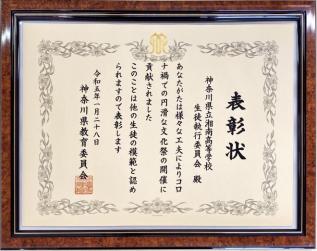 表彰状
神奈川県立湘南高等学校
生徒執行委員会 殿
あなたがたは様々な工夫によりコロ
ナ禍での円滑な文化祭の開催に
貢献されました
このことは他の生徒の模範と認め
られますので表彰します
令和五年一月二十八日
神奈川県教育委員会